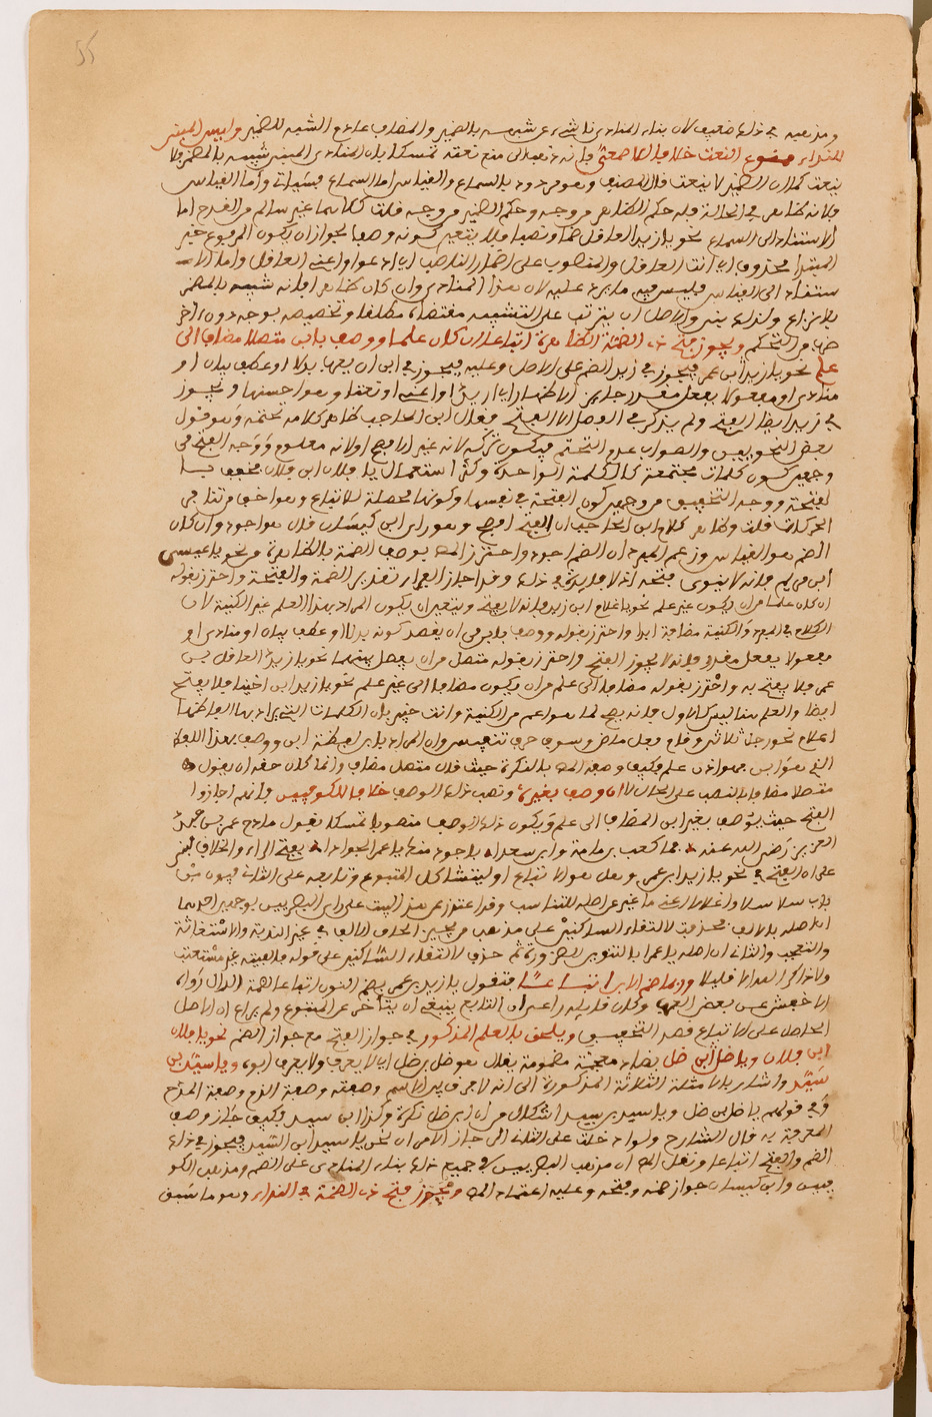 55
ومذهبه في ذلك ضعيف لان بناء المنادى ناشئ عن شبهه بالضمير والمضاف عادم الشبه للضمير وليس المبني
للنداء ممنوع النعت خلافا للاصمعي فانه ذهب الى منع نعته تمسكا بان المنادى المبني شبيه بالمضمر فلا
ينعت كما ان الضمير لا ينعت قال المصنف وهو مردود بالسماع والقياس اما السماع وأما القياس
فلانه ظاهر في الحالة فله حكم الظاهر من وجه وحكم الضمير من وجه قلت كلاهما غير سالم من القدح اما
الاستناد الى السماع نحو يا زيد العاقل ضما ونصبا فلا يتعين كونه وصفا لجواز ان يكون المرفوع خبر
المبتدا محذوف اي انت العاقل والمنصوب على اضمار الناصب اي ادعو او اعني العاقل واما الا
ستناد الى القياس فليس فيه ما يرد عليه لان هذا المنادى وان كان ظاهرا فانه شبيه بالمضمر
بلا نزاع ولذلك بني والاصل ان يترتب على التشبيه مقتضاه مطلقا وتخصيصه بوجه دون آخر
ضرب من التحكم ويجوز فتح ذي الضمة الظاهرة اتباعا ان كان علما ووصف بابن متصل مضاف الى
علم نحو يا زيد ابن عمر فيجوز في زيد الضم على الاصل وعليه فيجوز في ابن ان يعرب بدلا او عطف بيان او
منادى او مفعولا بفعل مقدر او اعني او نعتا وهو احسنها ويجوز
في زيد ايضا الفتح ولم يذكر في المفصل الا الفتح فقال ابن الحاجب ظاهر كلامه تحتمه وهو قول
بعض النحويين والصواب عدم التحتم
وجهين كون كلمات مجتمعة كالكلمة الواحدة وكثرة استعمال يا فلان ابن فلان مخفف با
لفتحة ووجه التخفيف من وجهين كون الفتحة في نفسها وكونها محصلة للاتباع وهو اخف من تنافي
الحركات قلت وظاهر كلام ابن الحاجب ان الفتح افصح وهو راي ابن كيسان قال هو اجود وان كان
الضم هو القياس وزعم المبرد ان الضم اجود واحترز المص بوصف الضمة بالظاهرة من نحو يا عيسى
ابن مريم فانه لا ينوى فتحه اذ لا فايدة في ذلك وقد اجاز الفراء تقدير الضمة والفتحة واحترز بقوله
ان كان علما من ان يكون غير علم نحو يا غلام ابن زيد فانه لا يفتح ويتعين ان يكون المراد بهذا العلم غير الكنية لان
الكلام في المبني والكنية مضافة ابدا واحترز بقوله ووصف بابن من ان يقصد كونه بدلا او عطف بيان او منادى او
مفعولا بفعل مقدر فانه لا يجوز الفتح واحترز بقوله متصل من ان يفصل بينهما نحو يا زيد العاقل بن
عمر فلا يفتح به واحترز بقوله مضاف الى علم من ان يكون مضافا الى غير علم نحو يا زيد ابن اخينا فلا يفتح
ايضا والعلم هنا ليس كالاول فانه يصح لما هو اعم من الكنية وانت خبير بان الكلمات التي يراد بها الفاظها
اعلام نحو رجل ثلاثي وقام فعل ماض وسوف حرف تنفيس وان المراد بابن لفظه ابن ووصف بهذا اللفظ
الذي هو ابن فهو اذن علم فكيف وصفه المص بالنكرة حيث قال متصل مضاف وانما كان حقه ان يقول
متصلا مضافا بالنصب على الحال لا ان وصف بغيره ونصب ذلك الوصف خلافا للكوفيين فانهم اجازوا
الفتح حيث يوصف بغير ابن المضاف الى علم ويكون ذلك الوصف منصوبا تمسكا بقول مادح عمر بن عبد
العزيز رضي الله عنه فما كعب بن مامة وابن سعدى باجود منك يا عمر الجوادا بفتح الراء والخلاف
على ان الفتح في نحو يا زيد ابن عمر وهل هو الاتباع او ليتشاكل المتبوع وتابعه على الثاني فيهون من
باب سلاسلا واغلالا اعني ما غير عن اصله للتناسب وقد اعتذر عن هذا البيت على راي البصريين بوجهين احدهما
ان اصله يا عمرا ثم حذفت لالتقاء الساكنين على مذهب من يجيز الحاق الالف في غير الندبة والاستغاثة
والتعجب والثاني ان اصله يا عمرا بالتنوين للضرورة ثم حذف لالتقاء الساكنين على قوله فالفيته غير مستعتب
ولا ذاكر الله الا قليلا وربما ضم الابن اتباعا فتقول يا زيد بن عمر بضم النون اتباعا لضمة الدال رواه
الاخفش عن بعض العرب وكان قايله راعى ان التابع ينبغي ان يتأخر عن المتبوع ولم يراع ان الاصل
الحامل على الاتباع قصد التخفيف ويلحق بالعلم المذكور في جواز الفتح مع جواز الضم نحو يا فلان
ابن فلان ويا ضل ابن ضل بضاد معجمة مضمومة يقال هو ضل بن ضل اي لا يعرف ولا يعرف ابوه ويا سيد بن
سيد واشار بالامثلة الثلاثة المذكورة الى انه لا فرق بين الاسم وصفته وصفة الذم وصفة المدح
وفي قولهم يا ضل بن ضل ويا سيد بن سيد اشكال من ان ابن ضل نكرة وكذا ابن سيد فكيف جاز وصف
المعرفة به قال الشارح ولو ادخلت على الثاني ال جاز الامران نحو يا سيد ابن السيد فيجوز في ذلك
الضم والفتح اتباعا ونقل المص ان مذهب البصريين في جميع ذلك بناء المنادى على الضم ومذهب الكو
فيين وابن كيسان جواز ضمه وفتحه وعليه اعتماد المص ومجوز فتح ذي الضمة في النداء وهو ما سبق